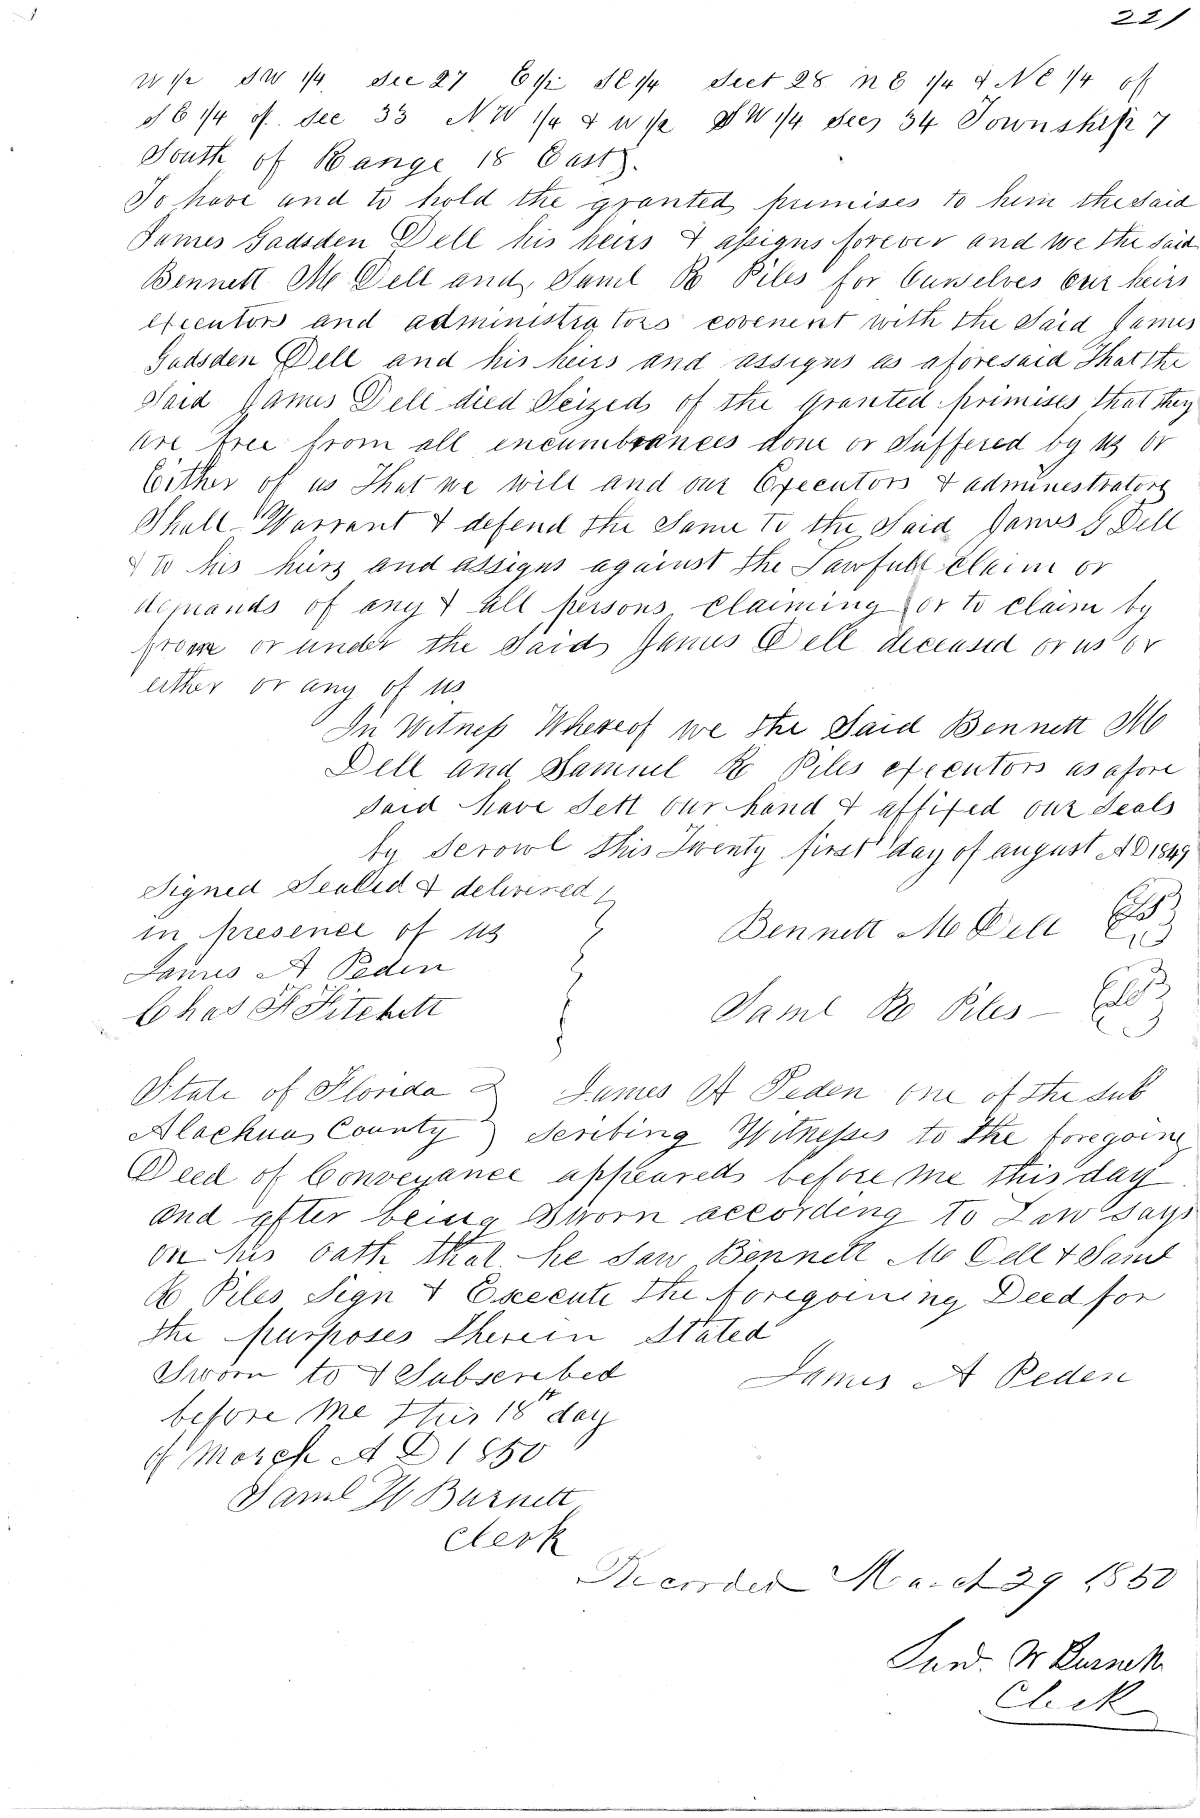 221
W 1/2 SW 1/4 Sec 27 E 1/2 SE 1/4 Sect 28 N E 1/4 & N E 1/4 of
S E 1/4 of Sec 33 N W 1/4 & W 1/2 S W 1/4 Sec 34 Township 7
South of Range 18 East.
To have and to hold the granted premises to him the said
James Gadsden Dell his heirs & assigns forever and we the said
Bennett M Dell and Saml R Piles for Ourselves our heirs
executors and administrators covenent with the Said James
Gadsden Dell and his heirs and assigns as aforesaid That the
Said James Dell died Seized of the granted primises that they
are free from all encumbrances done or Suffered by us or
Either of us That we will and our Executors & administrators
Shall Warrant & defend the Same to the Said James G Dell
& to his heirs and assigns against the Lawfull claim or
demands of any & all persons claiming or to claim by
from or under the Said James Dell deceased or us or
either or any of us
In Witness Whereof we the Said Bennett M
Dell and Samuel R Piles executors as afore
said have Sett our hand & affixed our Seals
by Scrowl this Twenty first day of august A D 1849
Signed Sealed & delivered
in presence of us
Bennett M Dell
James A Peden
Chas F Fitchett
Saml R Piles
State of Florida James A Peden one of the sub
Alachua County scribing Witnesses to the foregoing
Deed of Conveyance appeared before me this day
and after being Sworn according to Law says
on his oath that he Saw Bennett M Dell & Saml
R Piles Sign & Execute the foregoining Deed for
the purposes therein Stated
Sworn to & Subscribed James A Peden
before me this 18th day
of March A D 1850
Saml W Burnett
Clerk
Recorded March 29 1850
Sam. W Burnett
Clerk